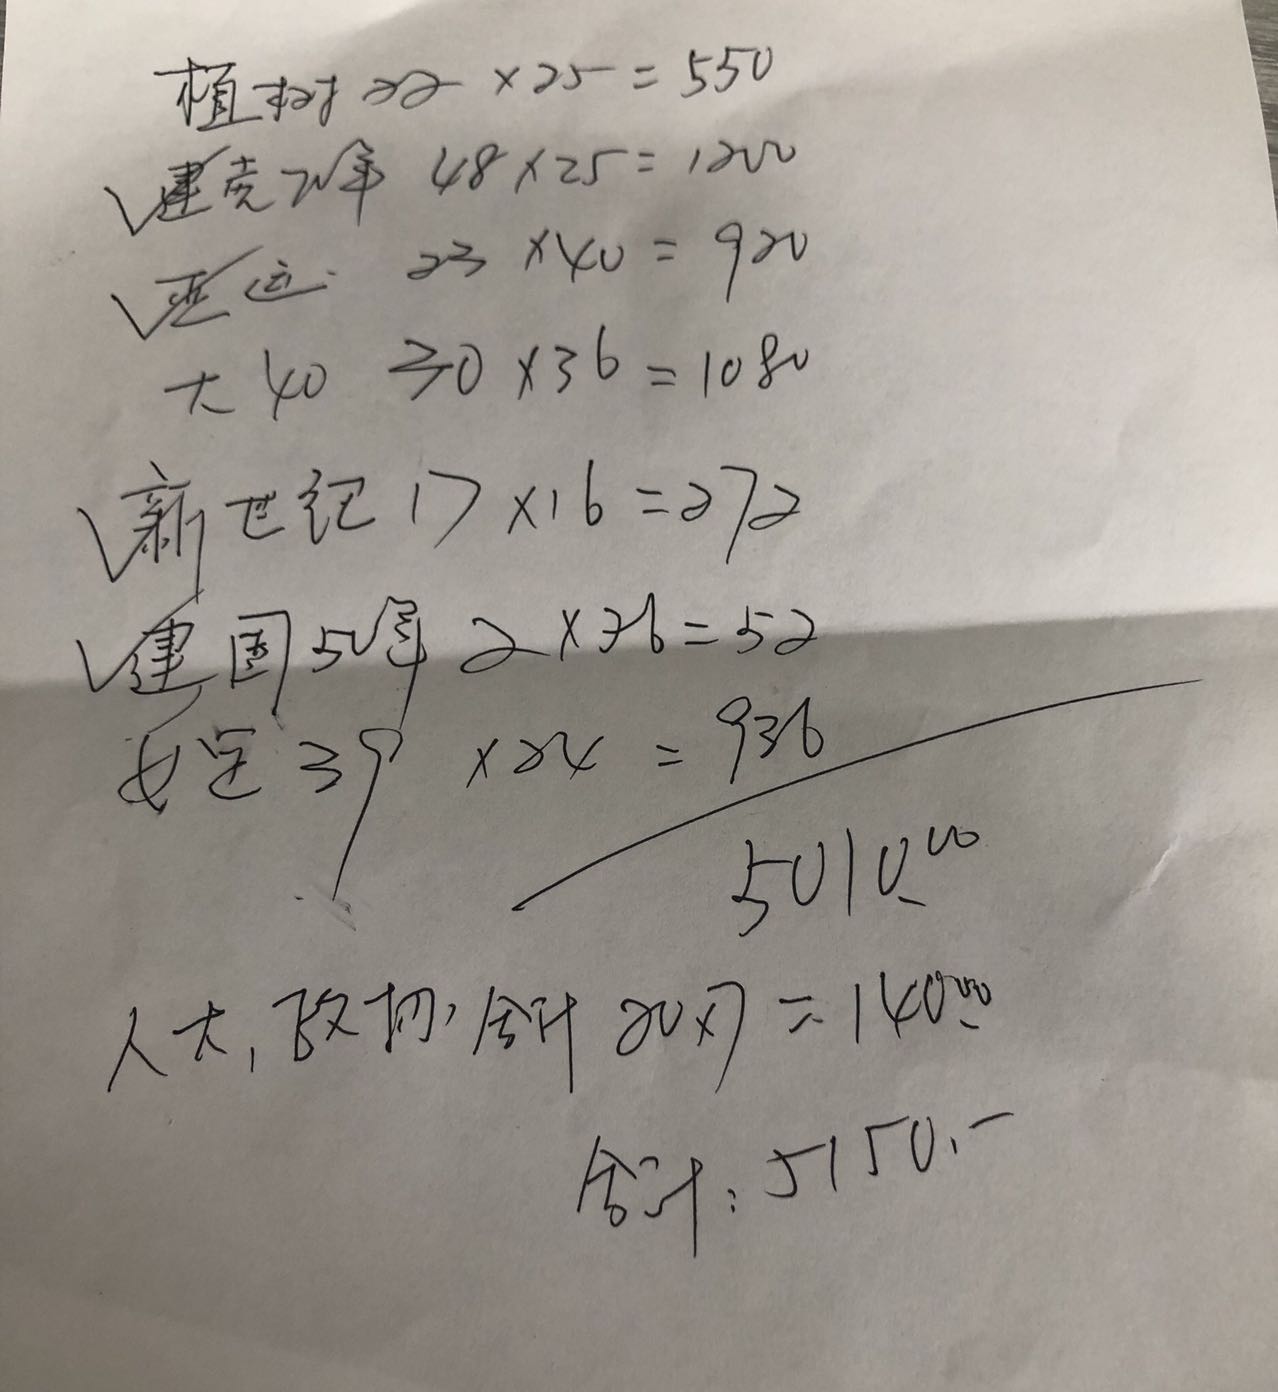 植树 22 × 25 = 550
建党70年 48 × 25 = 1200
亚运 23 × 40 = 920
大40 30 × 36 = 1080
新世纪 17 × 16 = 272
建国50年 2 × 26 = 52
女足 39 × 24 = 936
5010.00
人大, 政协, 合计 20×7 = 140.00
合计: 5150.-